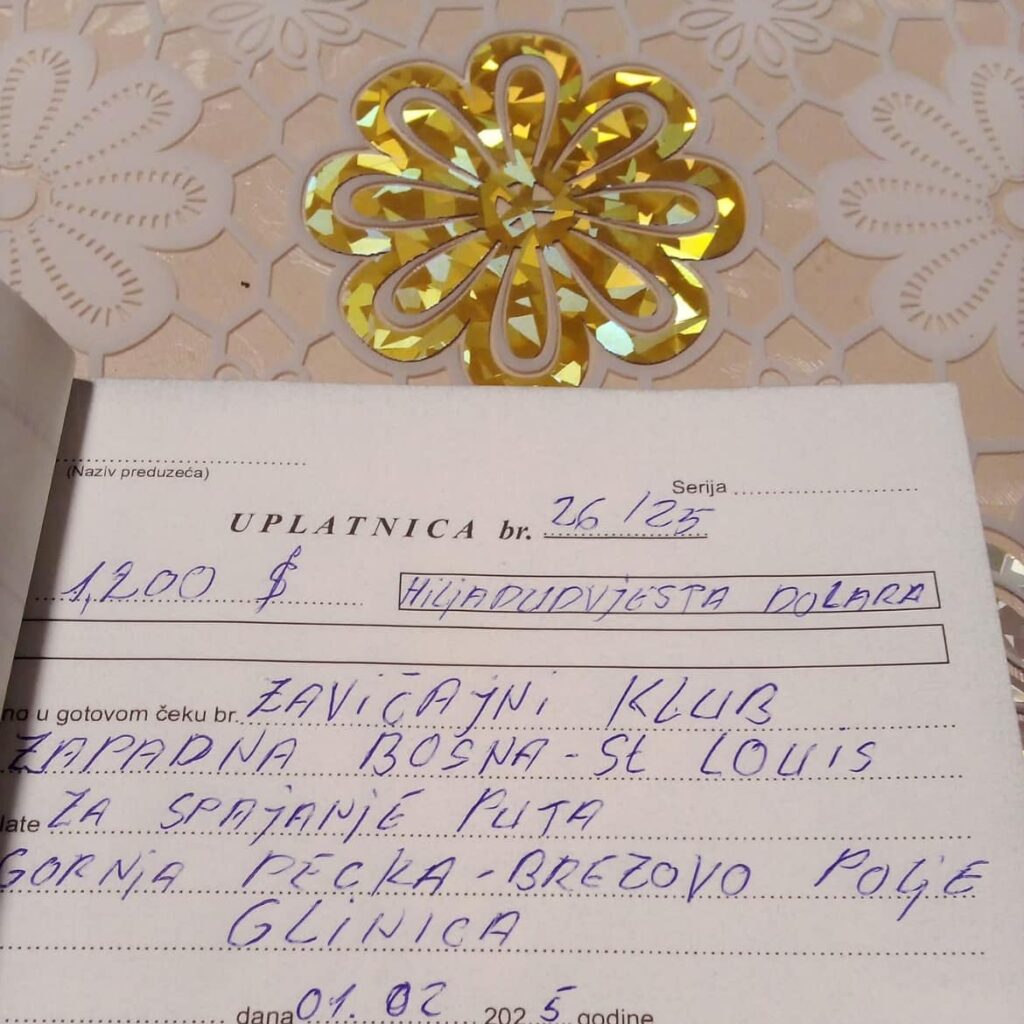 (Naziv preduzeća)
Serija
UPLATNICA br. 26/25
1,200 $ HiljADUDVjESTA DOLARA
no u gotovom čeku br. ZAViČAjNi KLUB
ZAPADNA BOSNA - St LOUIS
late ZA SPAjANjE PUTA
GORNjA PECKA - BREZOVO POljE
GLINICA
dana 01. 02 2025 godine